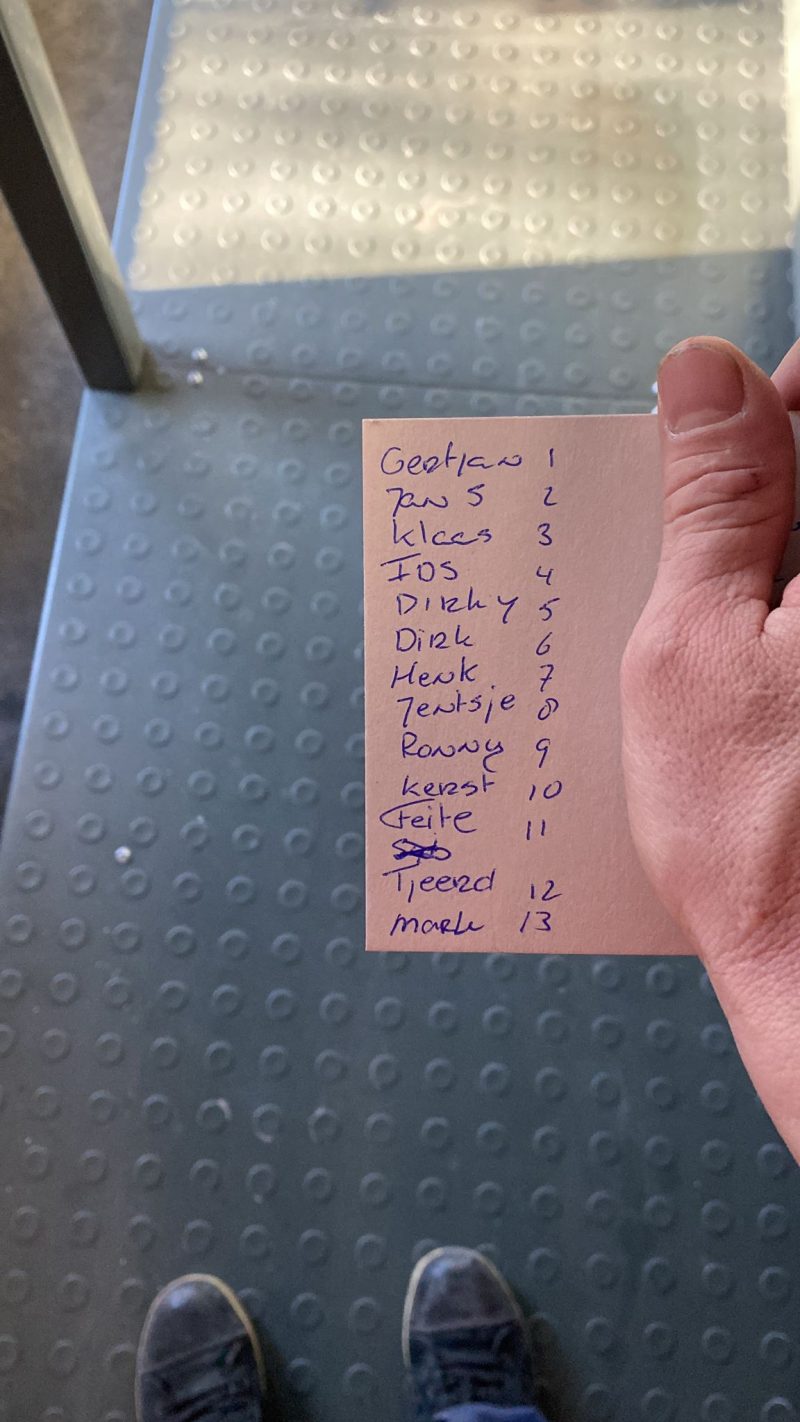 Gertjan 1
Jan S 2
Klaas 3
IDS 4
Dirky 5
Dirk 6
Henk 7
Jentsje 8
Ronny 9
Kerst 10
Feite 11
Tjeerd 12
Mark 13